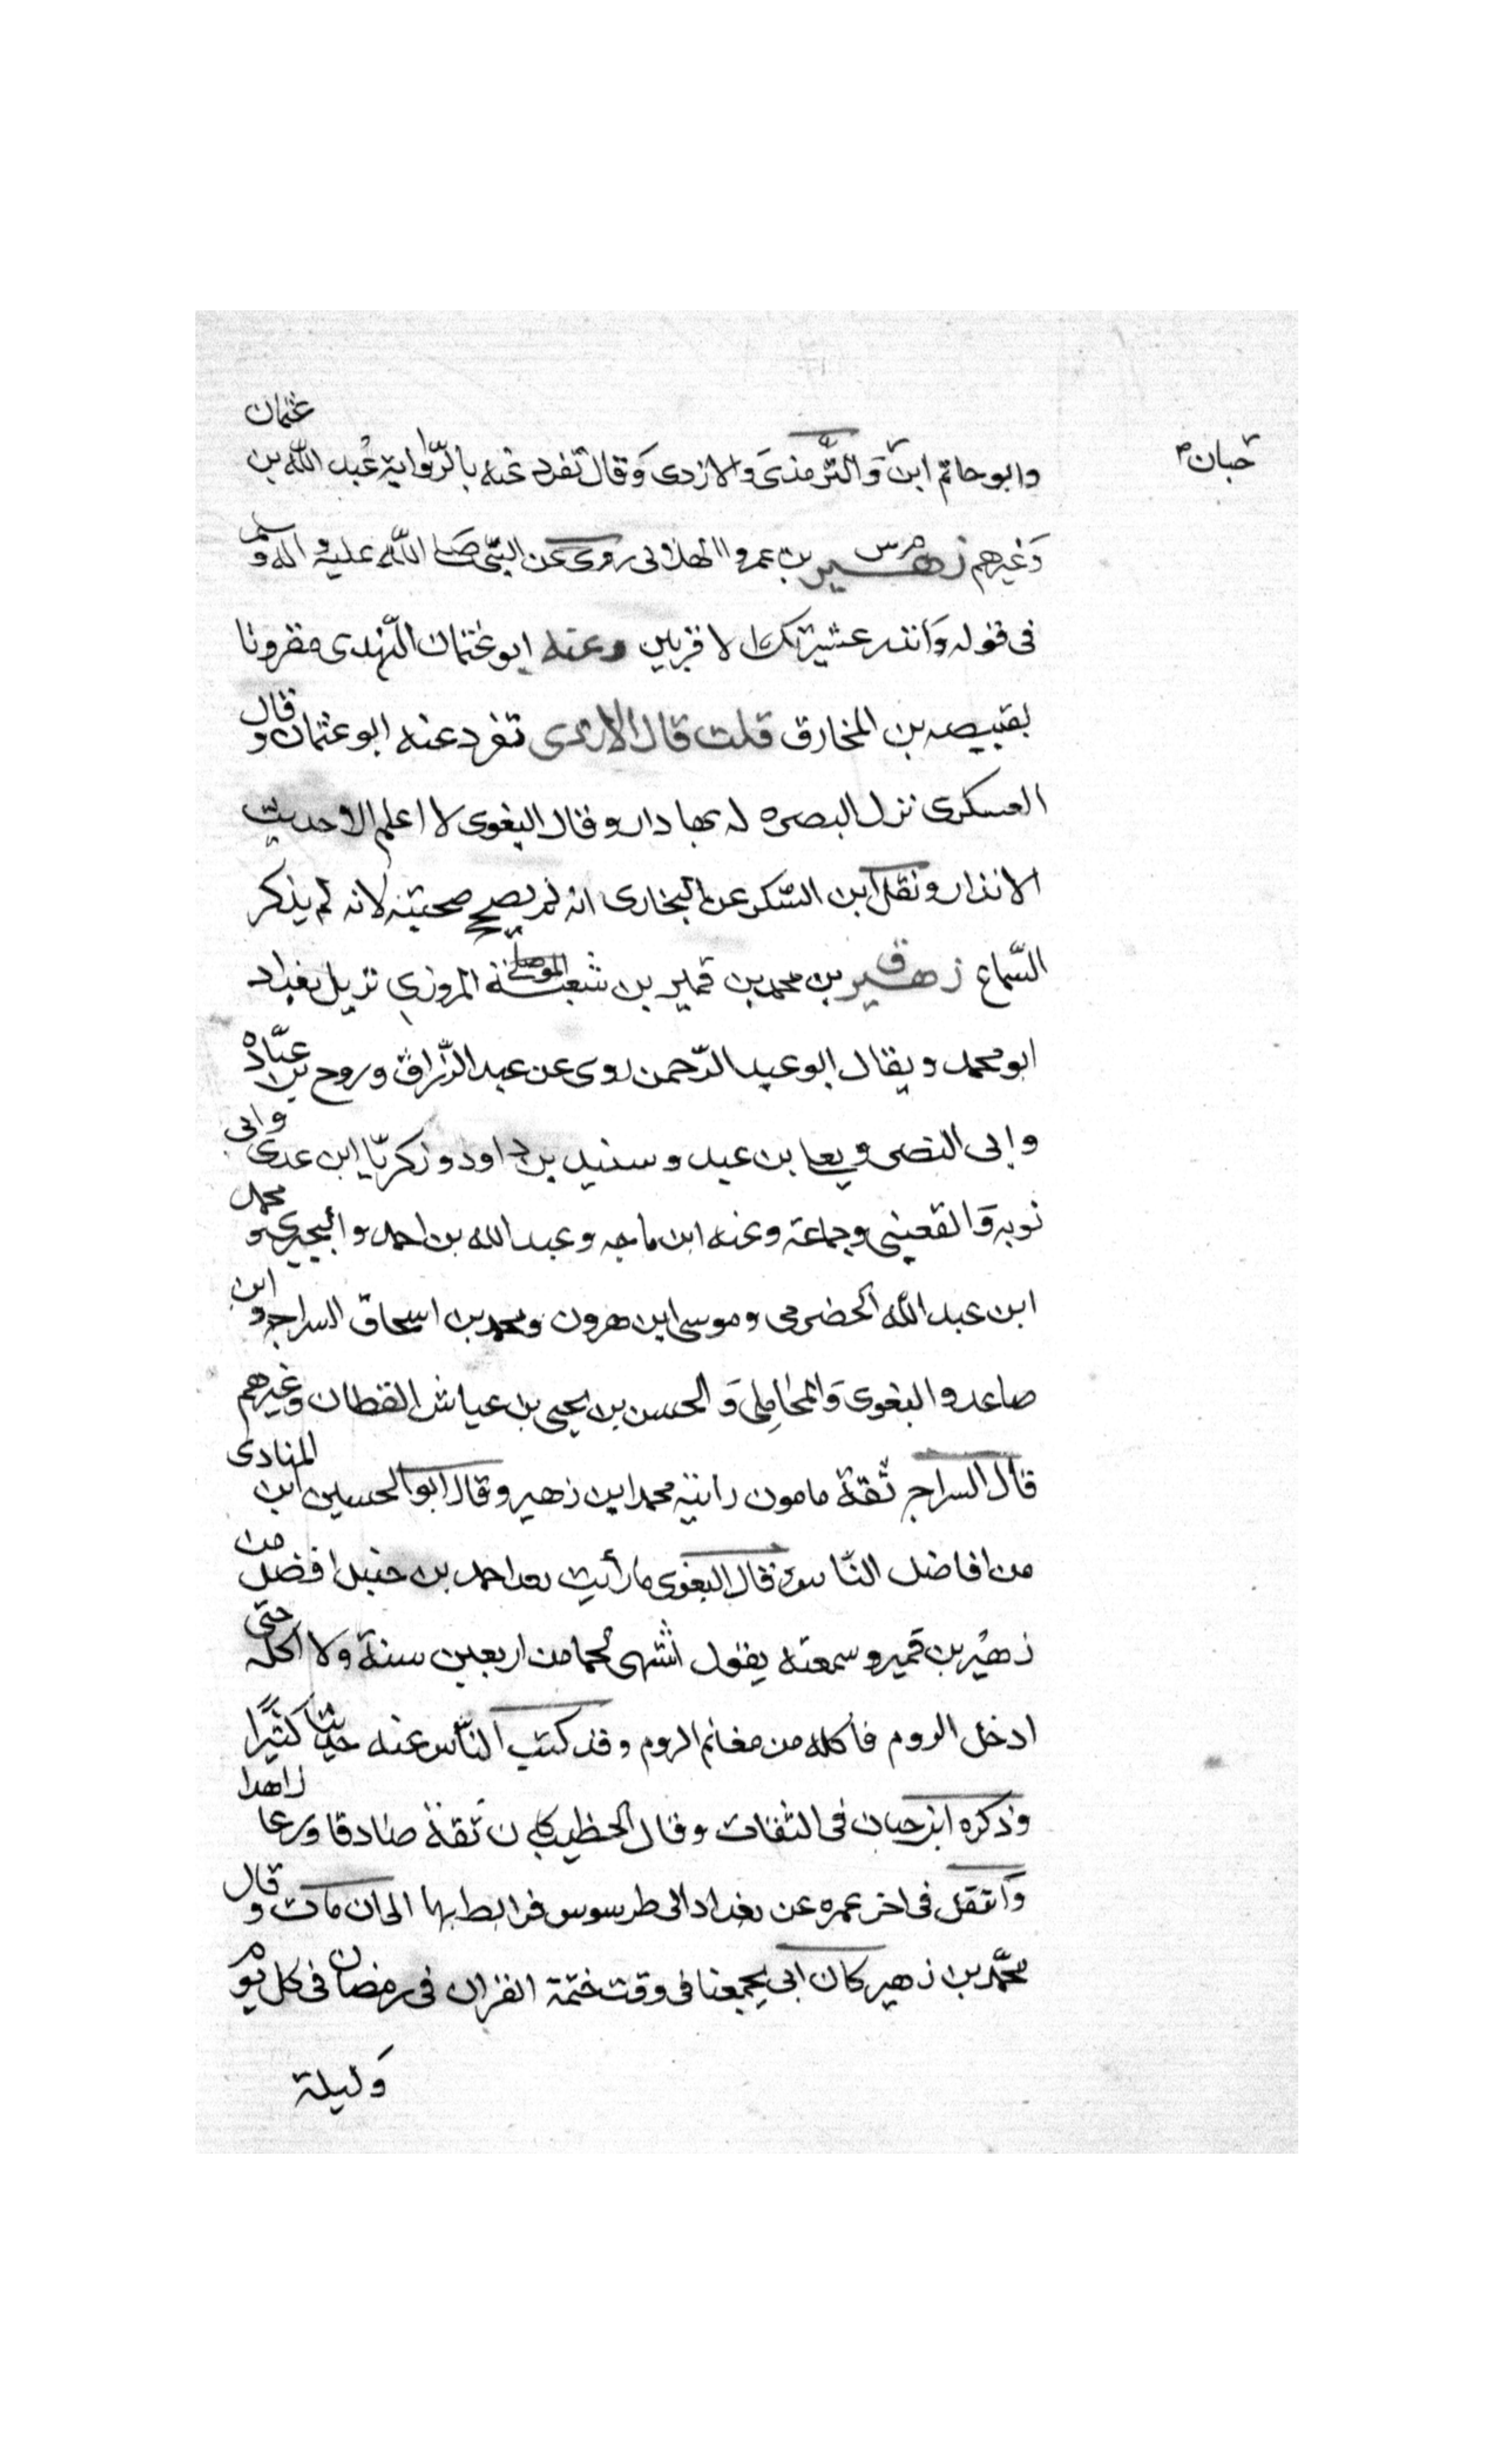 وابو حاتم ابن حبان والترمذى والازدى وقال تفرد عنه بالرواية عبد الله بن عثمان
وغيرهم زهير بن عمرو الهلالى روى عن النبى صلى الله عليه واله وسلم
فى قوله وانذر عشيرتك الاقربين وعنه ابو عثمان النهدى مقرونا
بقبيصه بن المخارق قلت قال الازدى تفرد عنه ابو عثمان وقال
العسكرى نزل البصره له بها دار وقال البغوى لا اعلم الا حديث
الانذار ونقل ابن السكن عن البخارى انه لم يصح صحبته لانه لم يذكر
السماع زهير بن محمد بن قمير بن شعبة المروزي نزيل بغداد
ابو محمد ويقال ابو عبد الرحمن روى عن عبد الرزاق وروح بن عباده
وابى النضر ويعلى بن عبيد وسنيد بن داود وزكريا ابن عدى وابى
توبه والقعنبى وجماعة وعنه ابن ماجه وعبد الله بن احمد والبجيرى ومحمد
ابن عبد الله الحضرمى وموسى ابن هرون ومحمد بن اسحاق السراج وابن
صاعد والبغوى والمحاملى والحسن بن يحيى بن عياش القطان وغيرهم
قال السراج ثقة مامون رانيه محمد ابن زهير وقال ابو الحسين ابن المنادى
من افاضل الناس قال البغوى ما رأيت بعد احمد بن حنبل افضل من
زهير بن قمير وسمعته يقول اشتهى لحما من اربعين سنة ولا اكله حتى
ادخل الروم فأكله من مغانم الروم وقد كتب الناس عنه حديثا كثيرا
وذكره ابن حبان فى الثقات وقال الخطيب كان ثقة صادقا ورعا زاهدا
وانتقل فى اخر عمره عن بغداد الى طرسوس فرابط بها الى ان مات وقال
محمد بن زهير كان ابى يجمعنا فى وقت ختمة القران فى رمضان فى كل يوم
وليلة